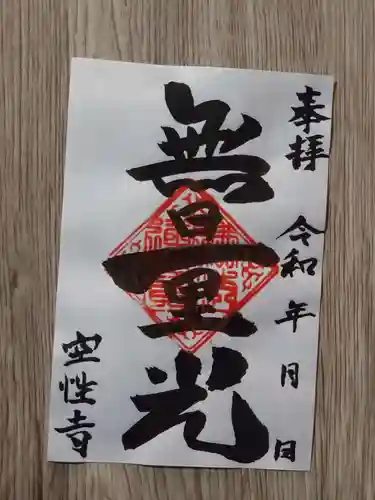 奉拝
令和 年 月 日
無量光
空性寺